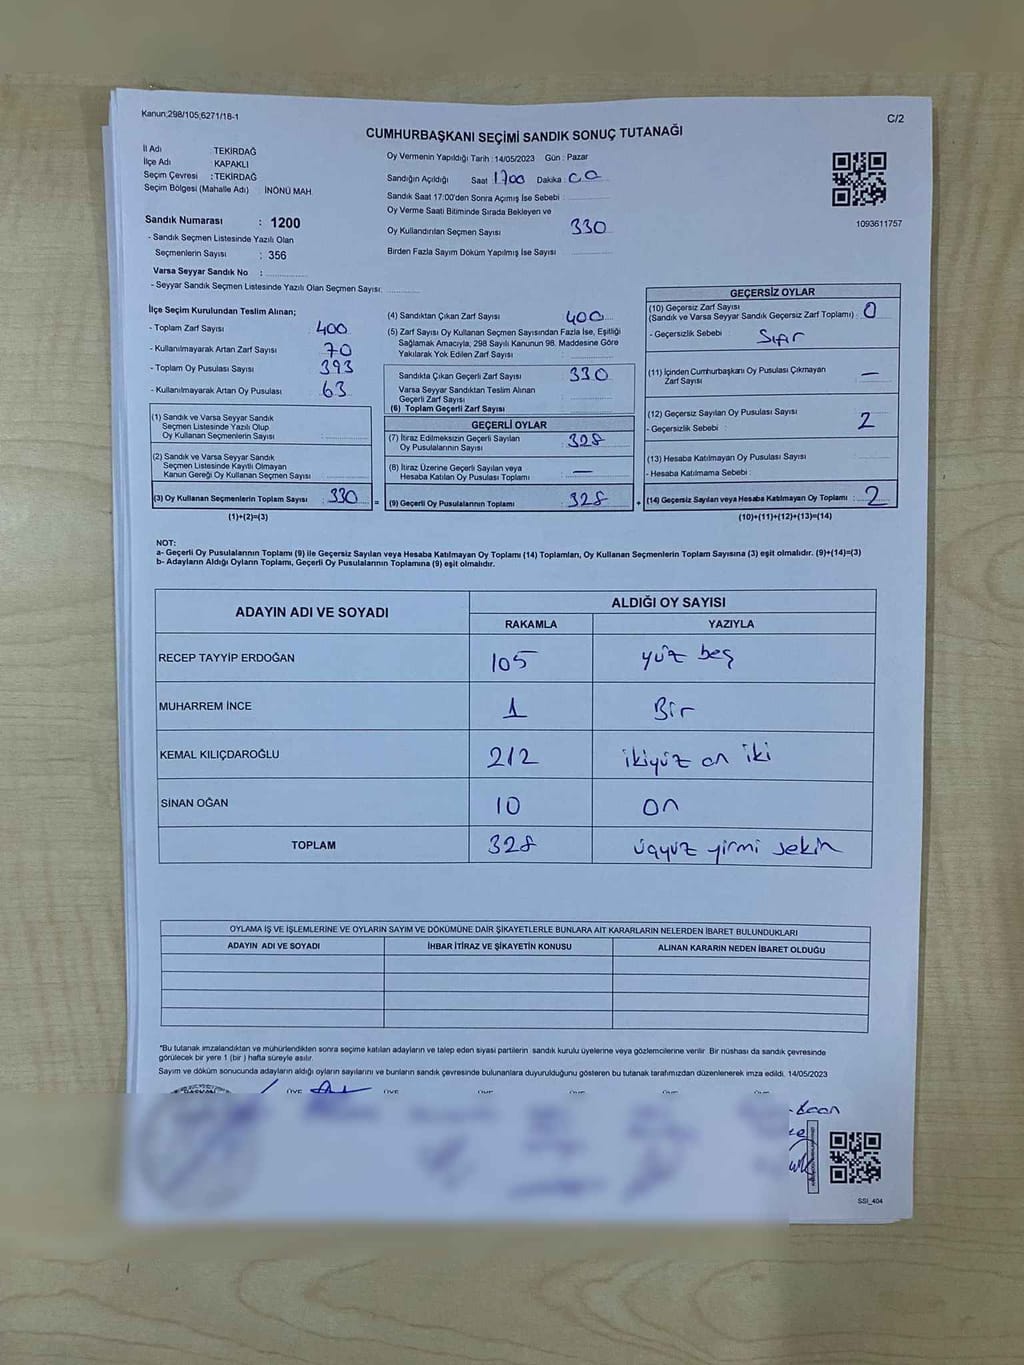 Kanun;298/105,6271/18-1
C/2
CUMHURBAŞKANI SEÇİMİ SANDIK SONUÇ TUTANAĞI
İl Adı TEKİRDAĞ
İlçe Adı KAPAKLI
Seçim Çevresi : TEKİRDAĞ
Seçim Bölgesi (Mahalle Adı) : İNÖNÜ MAH.
Oy Vermenin Yapıldığı Tarih : 14/05/2023 Gün : Pazar
Sandığın Açıldığı Saat 1700 Dakika : 00
Sandık Saat 17:00'den Sonra Açımış İse Sebebi :
Oy Verme Saati Bitiminde Sırada Bekleyen ve
Oy Kullandırılan Seçmen Sayısı 330
Birden Fazla Sayım Döküm Yapılmış İse Sayısı
1093611757
Sandık Numarası : 1200
- Sandık Seçmen Listesinde Yazılı Olan
Seçmenlerin Sayısı : 356
Varsa Seyyar Sandık No :
- Seyyar Sandık Seçmen Listesinde Yazılı Olan Seçmen Sayısı:
İlçe Seçim Kurulundan Teslim Alınan;
- Toplam Zarf Sayısı 400
- Kullanılmayarak Artan Zarf Sayısı 70
- Toplam Oy Pusulası Sayısı 393
- Kullanılmayarak Artan Oy Pusulası 63
(1) Sandık ve Varsa Seyyar Sandık
Seçmen Listesinde Yazılı Olup
Oy Kullanan Seçmenlerin Sayısı :
(2) Varsa Seyyar Sandık
Seçmen Listesinde Kayıtlı Olmayan
Kanun Gereği Oy Kullanan Seçmen Sayısı :
(3) Oy Kullanan Seçmenlerin Toplam Sayısı : 330 =
(1)+(2)=(3)
(4) Sandıktan Çıkan Zarf Sayısı : 400
(5) Zarf Sayısı Oy Kullanan Seçmen Sayısından Fazla İse, Eşitliği
Sağlamak Amacıyla; 298 Sayılı Kanunun 98. Maddesine Göre
Yakılarak Yok Edilen Zarf Sayısı :
Sandıkta Çıkan Geçerli Zarf Sayısı : 330
Varsa Seyyar Sandıktan Teslim Alınan
Geçerli Zarf Sayısı :
(6) Toplam Geçerli Zarf Sayısı :
GEÇERLİ OYLAR
(7) İtiraz Edilmeksizin Geçerli Sayılan
Oy Pusulalarının Sayısı : 328
(8) İtiraz Üzerine Geçerli Sayılan veya
Hesaba Katılan Oy Pusulası Toplamı : —
(9) Geçerli Oy Pusulalarının Toplamı : 328 +
GEÇERSİZ OYLAR
(10) Geçersiz Zarf Sayısı
(Sandık ve Varsa Seyyar Sandık Geçersiz Zarf Toplamı) : 0
- Geçersizlik Sebebi : Sıfır
(11) İçinden Cumhurbaşkanı Oy Pusulası Çıkmayan
Zarf Sayısı : —
(12) Geçersiz Sayılan Oy Pusulası Sayısı : 2
- Geçersizlik Sebebi :
(13) Hesaba Katılmayan Oy Pusulası Sayısı :
- Hesaba Katılmama Sebebi :
(14) Geçersiz Sayılan veya Hesaba Katılmayan Oy Toplamı : 2
(10)+(11)+(12)+(13)=(14)
NOT:
a- Geçerli Oy Pusulalarının Toplamı (9) ile Geçersiz Sayılan veya Hesaba Katılmayan Oy Toplamı (14) Toplamları, Oy Kullanan Seçmenlerin Toplam Sayısına (3) eşit olmalıdır. (9)+(14)=(3)
b- Adayların Aldığı Oyların Toplamı, Geçerli Oy Pusulalarının Toplamına (9) eşit olmalıdır.
ADAYIN ADI VE SOYADI ALDIĞI OY SAYISI
RAKAMLA YAZIYLA
RECEP TAYYİP ERDOĞAN 105 yüz beş
MUHARREM İNCE 1 Bir
KEMAL KILIÇDAROĞLU 212 ikiyüz on iki
SİNAN OĞAN 10 on
TOPLAM 328 üçyüz yirmi sekiz
OYLAMA İŞ VE İŞLEMLERİNE VE OYLARIN SAYIM VE DÖKÜMÜNE DAİR ŞİKAYETLERLE BUNLARA AİT KARARLARIN NELERDEN İBARET BULUNDUKLARI
ADAYIN ADI VE SOYADI İHBAR İTİRAZ VE ŞİKAYETİN KONUSU ALINAN KARARIN NEDEN İBARET OLDUĞU
*Bu tutanak imzalandıktan ve mühürlendikten sonra seçime katılan adayların ve talep eden siyasi partilerin sandık kurulu üyelerine veya gözlemcilerine verilir. Bir nüshası da sandık çevresinde
görülecek bir yere 1 (bir ) hafta süreyle asılır.
Sayım ve döküm sonucunda adayların aldığı oyların sayılarını ve bunların sandık çevresinde bulunanlara duyurulduğunu gösteren bu tutanak tarafımızdan düzenlenerek imza edildi. 14/05/2023
SSI_404